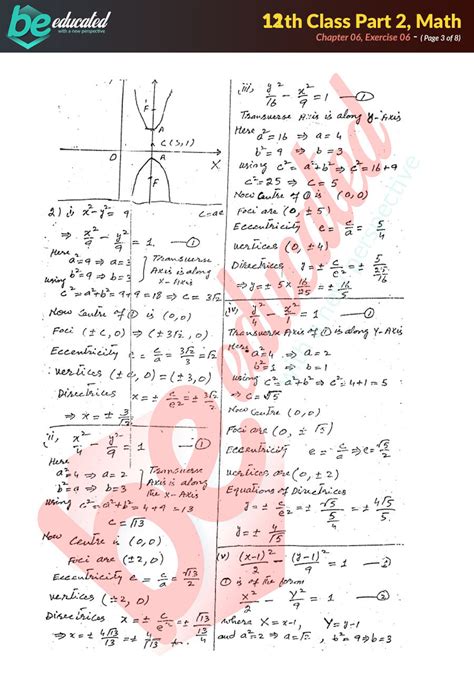 be educated
with a new perspective
12th Class Part 2, Math
Chapter 06, Exercise 06 - ( Page 3 of 8)
F
A
C(5,1)
O
A
X
F
2) i, x²-y² = 9
c=ae
⇒ x²/9 - y²/9 = 1 —①
Here
a²=9 ⇒ a=3
b²=9 ⇒ b=3
Transverse
Axis is along
X-Axis
using
c²=a²+b²=9+9=18 ⇒ c=3√2
Now Centre of ① is (0,0)
Foci (±c,0) = (±3√2,0)
Eccentricity = c/a = 3√2/3 = √2
vertices (±a,0) = (±3,0)
Directrices x=± c/e² = ± 3√2/2
⇒ x=± 3/√2
ii, x²/4 - y²/9 = 1 —①
Here
a²=4 ⇒ a=2
b²=9 ⇒ b=3
Transverse
Axis is along
the X-Axis
using c²=a²+b²=4+9=13
c=√13
Now Centre is (0,0)
Foci are (±2,0)
Eccentricity e= c/a = √13/2
vertices (±2,0)
Directrices x=± c/e² = ± √13/(13/4)
⇒ x=± 4√13/13 = ± 4/√13
iii, y²/16 - x²/9 = 1 —①
Transverse Axis is along y-Axis
Here a²=16 ⇒ a=4
b²=9 ⇒ b=3
using c²=a²+b² ⇒ c²=16+9
c²=25 ⇒ c=5
Now Centre of ① is (0,0)
Foci are (0,±5)
Eccentricity c/a = 5/4
vertices (0,±4)
Directrices y=± c/e² = ± 5/(25/16)
⇒ y=± 5× 16/25 = ± 16/5
iv, y²/4 - x²/1 = 1 —①
Transverse Axis of ① is along Y-Axis
Here a²=4 ⇒ a=2
b²=1 ⇒ b=1
using c²=a²+b² ⇒ c²=4+1=5
⇒ c=√5
Now Centre (0,0)
Foci are (0,±√5)
Eccentricity e= c/a ⇒ e= √5/2
vertices are (0,±2)
Equations of Directrices
y=± c/e² = ± √5/(5/4) = ± 4√5/5
y=± 4/√5
(v) (x-1)²/2 - (y-1)²/9 = 1 —①
① is of the form
X²/2 - Y²/9 = 1
where X=x-1, Y=y-1
and a²=2 ⇒ a=√2, b²=9 ⇒ b=3
be educated
with a new perspective